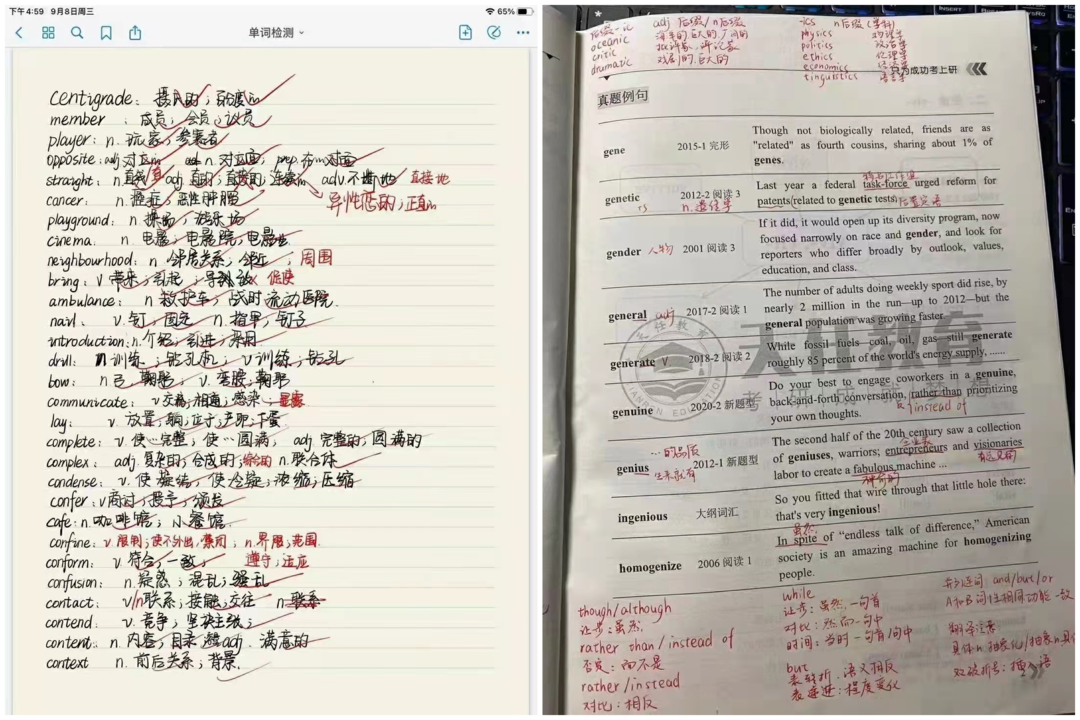 下午4:59 9月8日周三
65%
单词检测
centigrade: 摄氏的;百度的
member: 成员;会员;议员
player: n. 玩家;参赛者
opposite: adj 对立的 n. 对立面; prep. 在…对面
straight: n.直线 adj 直的;直接的;连续的 adv.不断地 直接地
异性恋的;正直的
cancer: n. 癌症;恶性肿瘤
playground: n. 操场;娱乐场
cinema: n. 电影;电影院;电影业
neighbourhood: n. 邻居关系;邻近;周围
bring: v 带来;引起;导致 促使
ambulance: n 救护车;战时流动医院
nail: v.钉;固定 n.指甲;钉子
introduction: n.介绍;引进;采用
drill: n训练;钻孔机;v训练;钻孔
bow: n弓,鞠躬;v.弯腰,鞠躬
communicate: v交流;相通;感染;
lay: v. 放置;下蛋
complete: v 使…完整,使…圆满, adj.完整的,圆满的
complex: adj.复杂的;合成的;综合的 n.联合体
condense: v. 使凝结,使冷凝;浓缩;压缩
confer: v商讨;授予;颁发
cafe: n.咖啡馆;小餐馆.
confine: v.限制; n.界限;范围
conform: v.符合,一致, 遵守,适应
confusion: n.疑惑;混乱;骚乱
contact: v/n联系;接触,交往 n.联系
contend: v.竞争;坚决主张;
content: n.内容,目录 adj.满意的
context n.前后关系;背景.
adj 后缀/n后缀 -ics n后缀(学科)
oceanic 海洋的 physics 物理学
critic 批评家、评论家 politics 政治学
dramatic 戏剧的,巨大的 ethics 伦理学
economics 经济学
linguistics 语言学
只为成功考上研
真题例句
gene 2015-1 完形 Though not biologically related, friends are as
"related" as fourth cousins, sharing about 1% of
genes.
genetic 2012-2 阅读 3 Last year a federal task-force urged reform for
patents related to genetic tests 后置定语
rs n.遗传学
gender 人物 2001 阅读 3 If it did, it would open up its diversity program, now
focused narrowly on race and gender, and look for
reporters who differ broadly by outlook, values,
education, and class.
general adj 2017-2 阅读 1 The number of adults doing weekly sport did rise, by
nearly 2 million in the run—up to 2012—but the
general population was growing faster.
generate v 2018-2 阅读 2 While fossil fuels—coal, oil, gas—still generate
roughly 85 percent of the world's energy supply, ......
genuine 2020-2 新题型 Do your best to engage coworkers in a genuine,
back-and-forth conversation, rather than prioritizing
your own thoughts. instead of
…的品质
genius 2012-1 新题型 The second half of the 20th century saw a collection
of geniuses, warriors, entrepreneurs and visionaries
labor to create a fabulous machine ...
生来就有 企业家 神奇的 有远见的
ingenious 大纲词汇 So you fitted that wire through that little hole there:
that's very ingenious!
虽然
homogenize 2006 阅读 1 In spite of "endless talk of difference," American
society is an amazing machine for homogenizing
people.
天任教育
TIANREN EDUCATION
though/although
让步:虽然
rather than/instead of
否定:而不是
rather/instead
对比:相反
while
让步:虽然 一句首
对比:然而一句中
时间:当时一句首/句中
but
表转折,语义相反
表递进:程度变化
并列连词:and/but/or
A和B词性相同功能一致
翻译注意:
具体n抽象化/抽象n具
双破折号:插入语